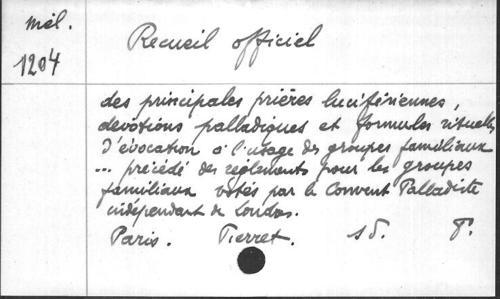 mél.
1204
Recueil officiel
des principales prières lucifériennes,
dévotions palladiques et formules rituelles
d'évocation à l'usage des groupes familiaux
... précédé des règlements pour les groupes
familiaux votés par le Convent Palladiste
indépendant de Londres.
Paris. Pierret. sd. P.